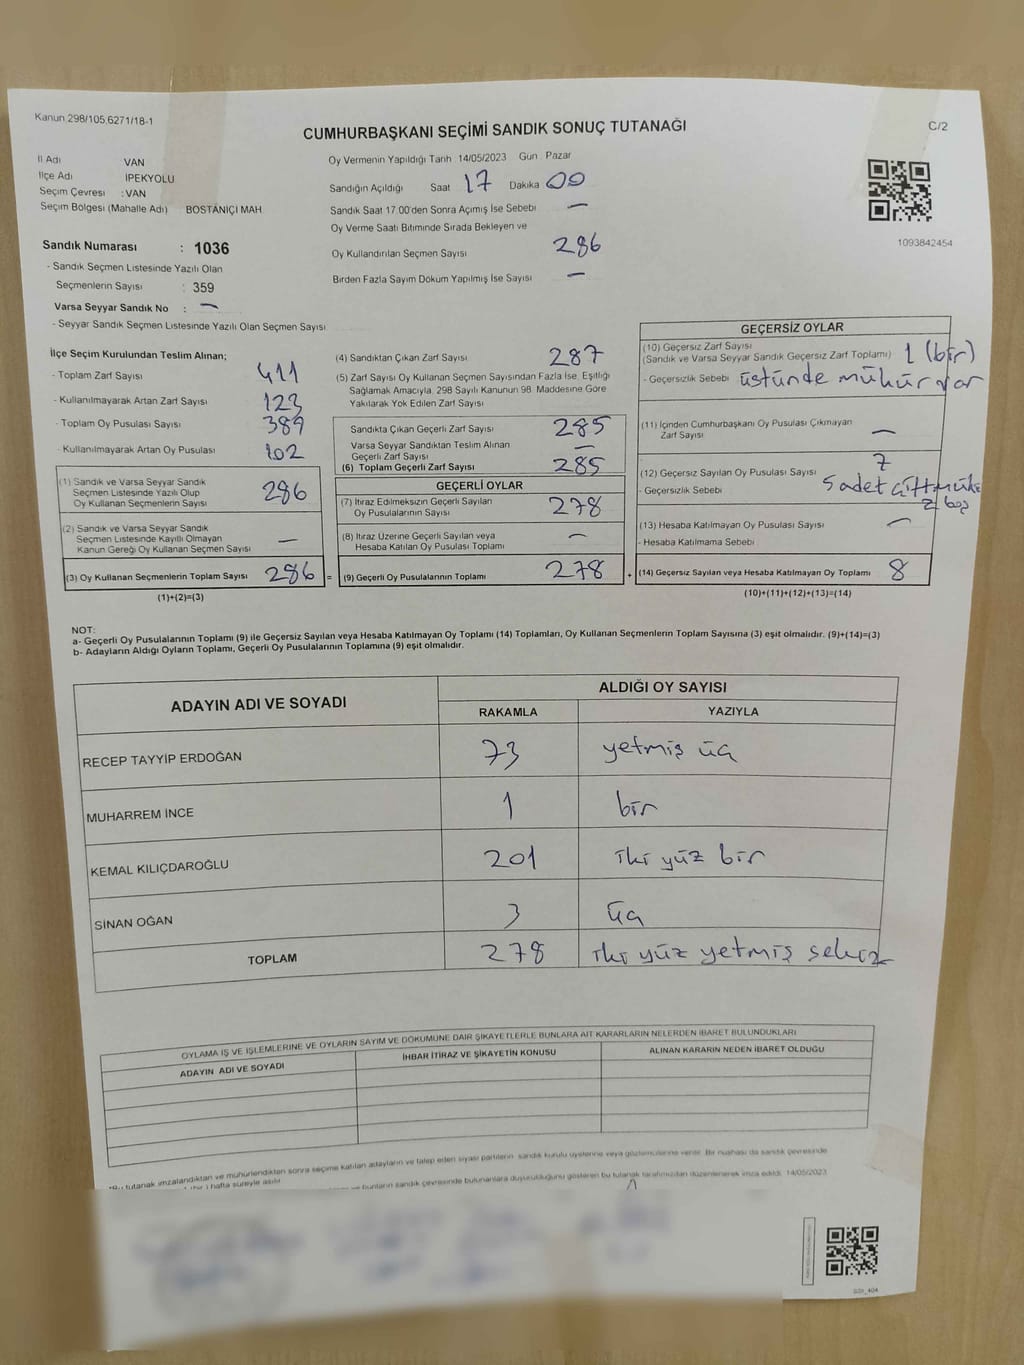 Kanun 298/105,6271/18-1
CUMHURBAŞKANI SEÇİMİ SANDIK SONUÇ TUTANAĞI
C/2
İl Adı VAN
İlçe Adı İPEKYOLU
Seçim Çevresi : VAN
Seçim Bölgesi (Mahalle Adı) BOSTANİÇİ MAH
Oy Vermenin Yapıldığı Tarih 14/05/2023 Gün . Pazar
Sandığın Açıldığı Saat 17 Dakika 00
Sandık Saat 17.00'den Sonra Açımış İse Sebebi —
Oy Verme Saati Bitiminde Sırada Bekleyen ve
Oy Kullandırılan Seçmen Sayısı 286
Birden Fazla Sayım Döküm Yapılmış İse Sayısı —
1093842454
Sandık Numarası : 1036
- Sandık Seçmen Listesinde Yazılı Olan
Seçmenlerin Sayısı : 359
Varsa Seyyar Sandık No : —
- Seyyar Sandık Seçmen Listesinde Yazılı Olan Seçmen Sayısı
İlçe Seçim Kurulundan Teslim Alınan;
- Toplam Zarf Sayısı 411
- Kullanılmayarak Artan Zarf Sayısı 123
- Toplam Oy Pusulası Sayısı 389
- Kullanılmayarak Artan Oy Pusulası 102
(1) Sandık ve Varsa Seyyar Sandık
Seçmen Listesinde Yazılı Olup
Oy Kullanan Seçmenlerin Sayısı 286
(2) Sandık ve Varsa Seyyar Sandık
Seçmen Listesinde Kayıtlı Olmayan
Kanun Gereği Oy Kullanan Seçmen Sayısı —
(3) Oy Kullanan Seçmenlerin Toplam Sayısı 286 =
(1)+(2)=(3)
(4) Sandıktan Çıkan Zarf Sayısı 287
(5) Zarf Sayısı Oy Kullanan Seçmen Sayısından Fazla İse, Eşitliği
Sağlamak Amacıyla, 298 Sayılı Kanunun 98. Maddesine Göre
Yakılarak Yok Edilen Zarf Sayısı
Sandıkta Çıkan Geçerli Zarf Sayısı 285
Varsa Seyyar Sandıktan Teslim Alınan
Geçerli Zarf Sayısı —
(6) Toplam Geçerli Zarf Sayısı 285
GEÇERLİ OYLAR
(7) İtiraz Edilmeksizin Geçerli Sayılan
Oy Pusulalarının Sayısı 278
(8) İtiraz Üzerine Geçerli Sayılan veya
Hesaba Katılan Oy Pusulası Toplamı —
(9) Geçerli Oy Pusulalarının Toplamı 278 +
GEÇERSİZ OYLAR
(10) Geçersiz Zarf Sayısı
(Sandık ve Varsa Seyyar Sandık Geçersiz Zarf Toplamı) 1 (bir)
- Geçersizlik Sebebi üstünde mühür var
(11) İçinden Cumhurbaşkanı Oy Pusulası Çıkmayan
Zarf Sayısı —
(12) Geçersiz Sayılan Oy Pusulası Sayısı 7
- Geçersizlik Sebebi 5 adet çift
2 boş
(13) Hesaba Katılmayan Oy Pusulası Sayısı —
- Hesaba Katılmama Sebebi
(14) Geçersiz Sayılan veya Hesaba Katılmayan Oy Toplamı 8
(10)+(11)+(12)+(13)=(14)
NOT:
a- Geçerli Oy Pusulalarının Toplamı (9) ile Geçersiz Sayılan veya Hesaba Katılmayan Oy Toplamı (14) Toplamları, Oy Kullanan Seçmenlerin Toplam Sayısına (3) eşit olmalıdır. (9)+(14)=(3)
b- Adayların Aldığı Oyların Toplamı, Geçerli Oy Pusulalarının Toplamına (9) eşit olmalıdır.
ADAYIN ADI VE SOYADI ALDIĞI OY SAYISI
RAKAMLA YAZIYLA
RECEP TAYYİP ERDOĞAN 73 yetmiş üç
MUHARREM İNCE 1 bir
KEMAL KILIÇDAROĞLU 201 iki yüz bir
SİNAN OĞAN 3 üç
TOPLAM 278 iki yüz yetmiş sekiz
OYLAMA İŞ VE İŞLEMLERİNE VE OYLARIN SAYIM VE DÖKÜMÜNE DAİR ŞİKAYETLERLE BUNLARA AİT KARARLARIN NELERDEN İBARET BULUNDUKLARI
ADAYIN ADI VE SOYADI İHBAR İTİRAZ VE ŞİKAYETİN KONUSU ALINAN KARARIN NEDEN İBARET OLDUĞU
tutanak imzalandıktan ve mühürlendikten sonra seçime katılan adayların ve talep eden siyasi partilerin sandık kurulu üyelerine veya gözlemcilerine verilir. Bir nüshası da sandık çevresinde
hafta süreyle asılır. ve bunların sandık çevresinde bulunanlara duyurulduğunu gösteren bu tutanak tarafımızdan düzenlenerek imza edildi. 14/05/2023